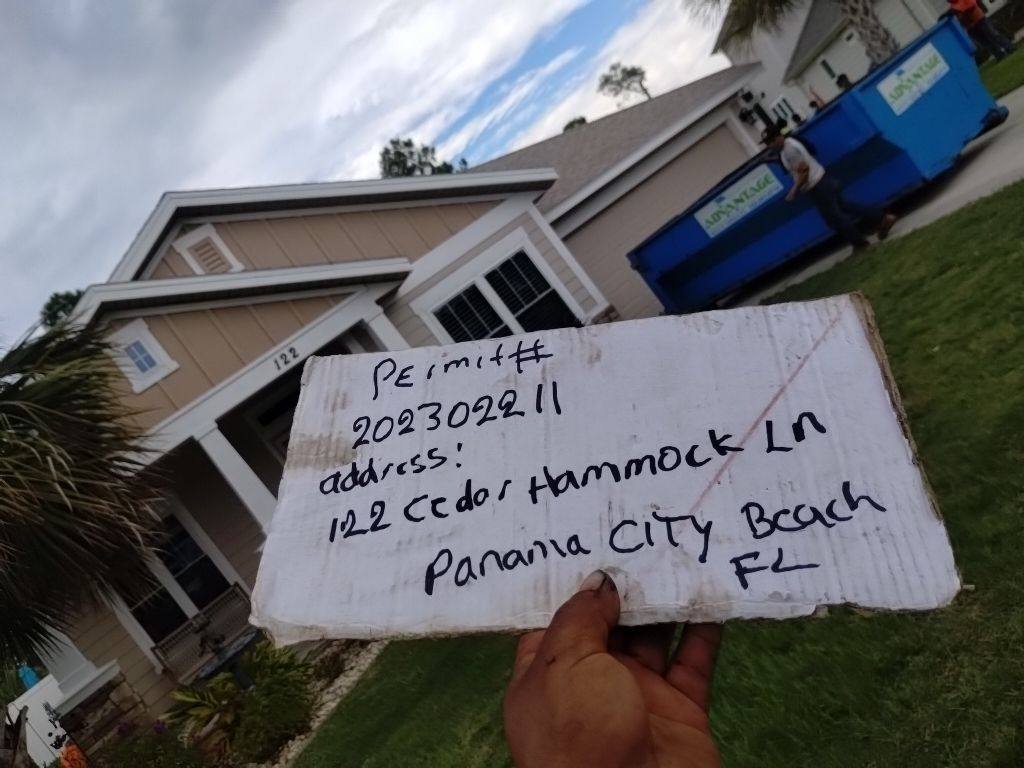 122
ADVANTAGE
ADVANTAGE
Permit#
202302211
address:
122 Cedar Hammock Ln
Panama CITY Beach
FL